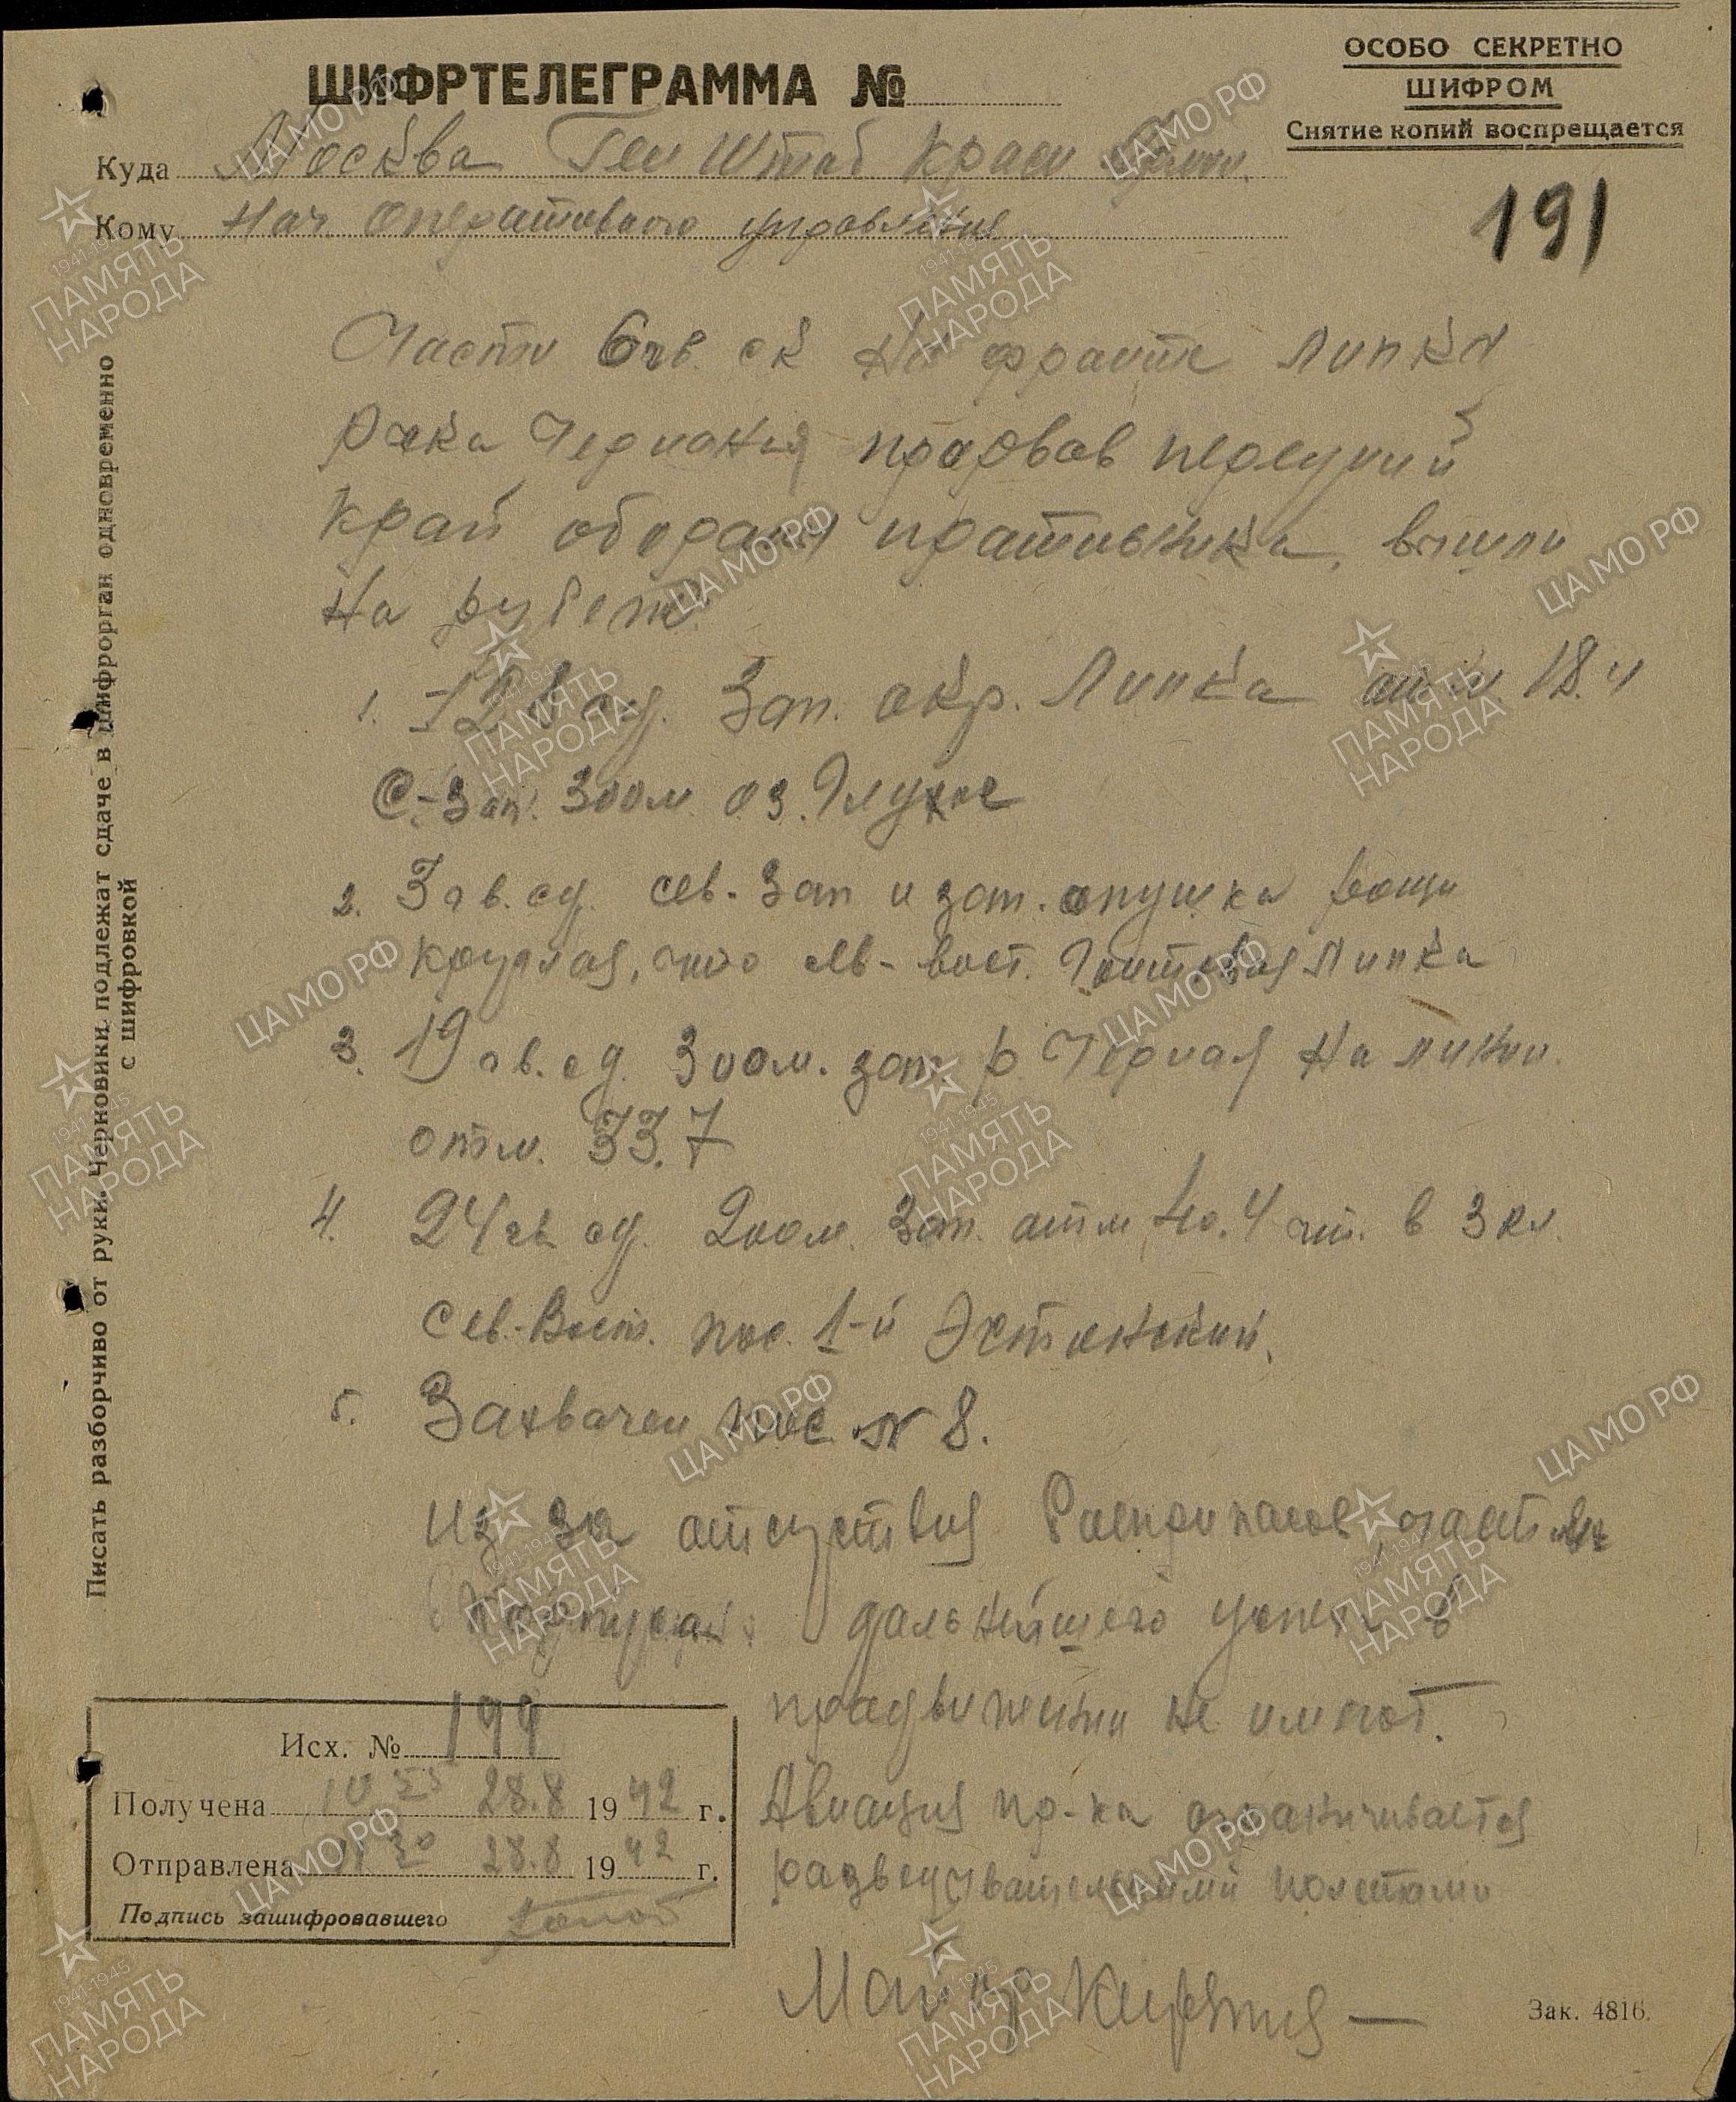 ОСОБО СЕКРЕТНО
ШИФРОМ
Снятие копий воспрещается
ШИФРТЕЛЕГРАММА №
Куда Москва Ген Штаб Красн.
Кому Нач Оперативного управления
191
Части 6 гв. ск на фронте Липка
река Черная прорвав передний
край обороны противника, вышли
на рубеж
1. 128 сд. Зап. окр. Липка 18.4
С-Зап. 300 м оз. Глухое
2. 3 гв. сд. сев. Зап и зап. опушка рощи
Круглая, что сев-вост. Гонтовая Липка
3. 19 гв. сд. 300 м. зап р Черная на линии
отм. 33.7
4. 24 гв сд. 200 м. Зап. отм 40.4 что в 3 км
Сев.-Вост. пос. 1-й Эстонский.
5. Захвачен пос № 8.
Из за отсуствия боеприпасов, части
корпуса дальнейшего успеха в
продвижении не имеют.
Авиация пр-ка ограничивается
разведывательными полетами
Майор
Исх. № 199
Получена 10 55 28.8 1942 г.
Отправлена 30 28.8 1942 г.
Подпись зашифровавшего
Зак. 4816.
Писать разборчиво от руки. Черновики подлежат сдаче в шифрорган одновременно
с шифровкой
ЦА МО РФ
1941-1945
ПАМЯТЬ
НАРОДА